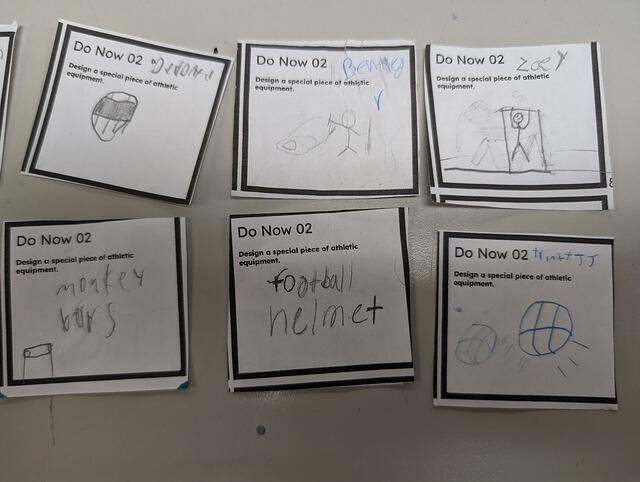 Do Now 02
Design a special piece of athletic
equipment.
Do Now 02
Design a special piece of athletic
equipment.
Do Now 02 Zoey
Design a special piece of athletic
equipment.
Do Now 02
Design a special piece of athletic
equipment.
monkey
bars
Do Now 02
Design a special piece of athletic
equipment.
football
helmet
Do Now 02
Design a special piece of athletic
equipment.